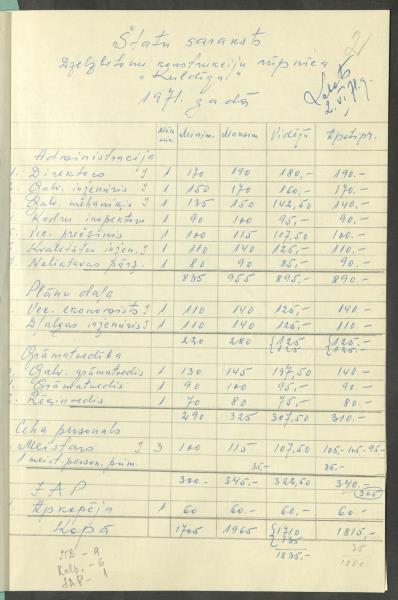 Štatu saraksts
Dzelzbetona konstrukciju rūpnīca
"Kuldīga"
1971. gadā
Minim. Maksim. Vidējā Apstipr.
Administrācija
1. Direktors I 1 170 190 180,- 190.-
2. Galv. inženieris I 1 150 170 160.- 170.-
Galv. mehāniķis I 1 135 150 142,50 140.-
Kadru inspektors 1 90 100 95,- 90.-
1 100 115 107,50 100.-
Kvalitātes inžen. I 1 110 140 125,- 110.-
Noliktavas pārz. 1 80 90 85,- 90.-
835 955 895,- 890.-
Plānu daļa
Vec. ekonomists I 1 110 140 125,- 140.-
Darba inženieris I 1 110 140 125,- 110.-
220 280 125 125.-
125 125.-
Grāmatvedība
Galv. grāmatvedis 1 130 145 137,50 140.-
Grāmatvedis 1 90 100 95,- 90.-
1 70 80 75,- 80.-
290 325 307,50 310.-
Ceha personāls
Meistars I 3 100 115 107,50 105,-105,-95-
1 meist. person. prēm. 35,- 35.-
300.- 345.- 322,50 340.-
305
Apkopēja 1 60 60.- 60,- 60.-
Kopā 1705 1965 1710 1815.-
1835.- 35
1850
ITD - 9
Kalp. - 6